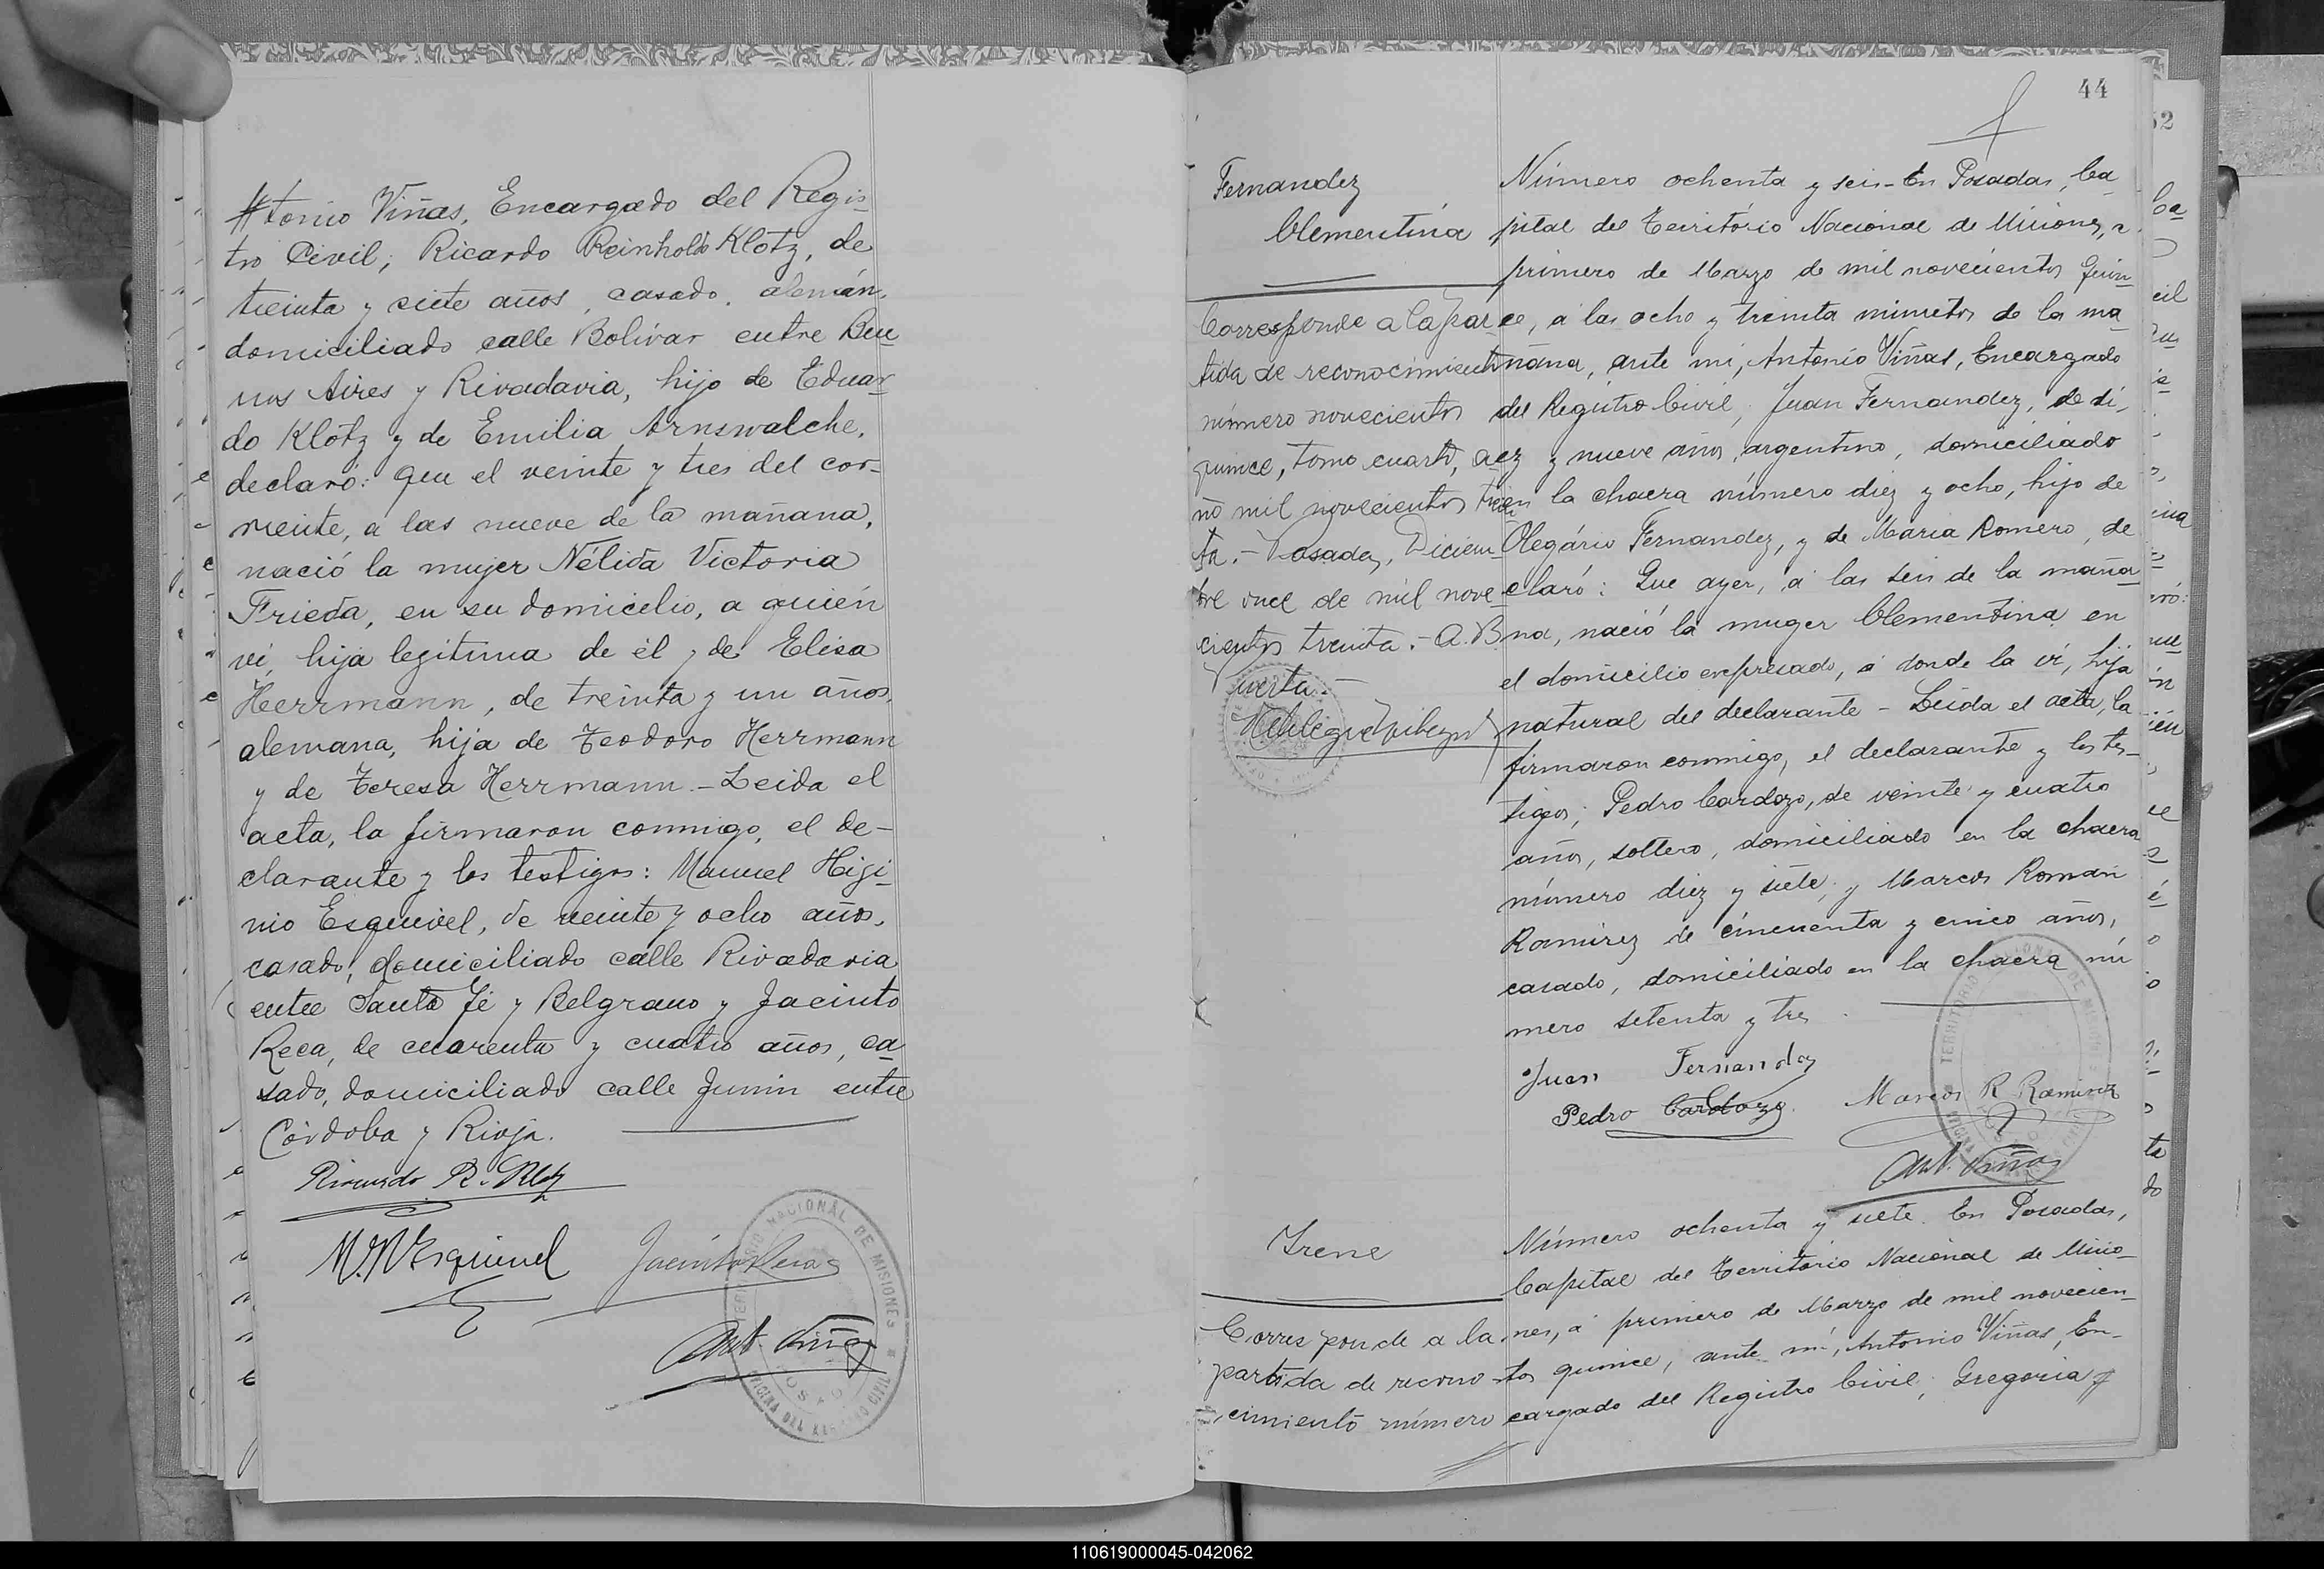 #tonio Viñas, Encargado del Regis-
tro Civil; Ricardo Reinholdo Klotz, de
treinta y siete años, casado, alemán,
domiciliado calle Bolívar entre Bue
nos Aires y Rivadavia, hijo de Eduar
do Klotz y de Emilia Arnswalche,
declaró: que el veinte y tres del cor-
riente, a las nueve de la mañana,
nació la mujer Nélida Victoria
Frieda, en su domicilio, a quién
vi, hija legitima de él y de Elisa
Herrmann, de treinta y un años,
alemana, hija de Teodoro Herrmann
y de Teresa Herrmann.- Leida el
acta, la firmaron conmigo, el de-
clarante y los testigos: Manuel Higi-
nio Esquivel, de veinte y ocho años,
casado, domiciliado calle Rivadavia
entre Santa Fé y Belgrano y Jacinto
Reca, de cuarenta y cuatro años, ca
sado, domiciliado calle Junin entre
Córdoba y Rioja.
Ricardo R. Klotz
M. H Esquivel Jacinto Reca
Ant. Viñas
TERRITORIO NACIONAL DE MISIONES
OFICINA DEL REGISTRO CIVIL
POSADAS
44
52
Fernandez
Clementina
Corresponde a la par
tida de reconocimiento
número novecientos
quince, tomo cuarto, a
ño mil novecientos trein
ta.- Posadas, Diciem
bre once de mil nove
cientos treinta.- A. B.
Puerta.-
Número ochenta y seis- En Posadas, Ca
pital del Território Nacional de Misiones, a
primero de Marzo de mil novecientos quin
ce, á las ocho y treinta minutos de la ma
ñana, ante mi, Antonio Viñas, Encargado
del Registro Civil; Juan Fernandez, de di
ez y nueve años, argentino, domiciliado
en la chacra número diez y ocho, hijo de
Olegário Fernandez, y de Maria Romero, de
claró: Que ayer, á las seis de la maña
na, nació la muger Clementina en
el domicilio expresado, á donde la ví, hija
natural del declarante - Leida el acta, la
firmaron conmigo, el declarante y los tes-
tigos; Pedro Cardozo, de veinte y cuatro
años, soltero, domiciliado en la chacra
número diez y siete; y Marcos Román
Ramirez de cincuenta y cinco años,
casado, domiciliado en la chacra nú
mero setenta y tres
Juan Fernandez
Pedro Cardozo. Marcos R Ramirez
Ant. Viñas
TERRITORIO NACIONAL DE MISIONES
Irene
Corresponde a la
partida de recono
cimiento número
Número ochenta y siete. En Posadas,
Capital del Território Nacional de Misio-
nes, á primero de Marzo de mil novecien-
tos quince, ante mí, Antonio Viñas, En-
cargado del Registro Civil; Gregoria
110619000045-042062